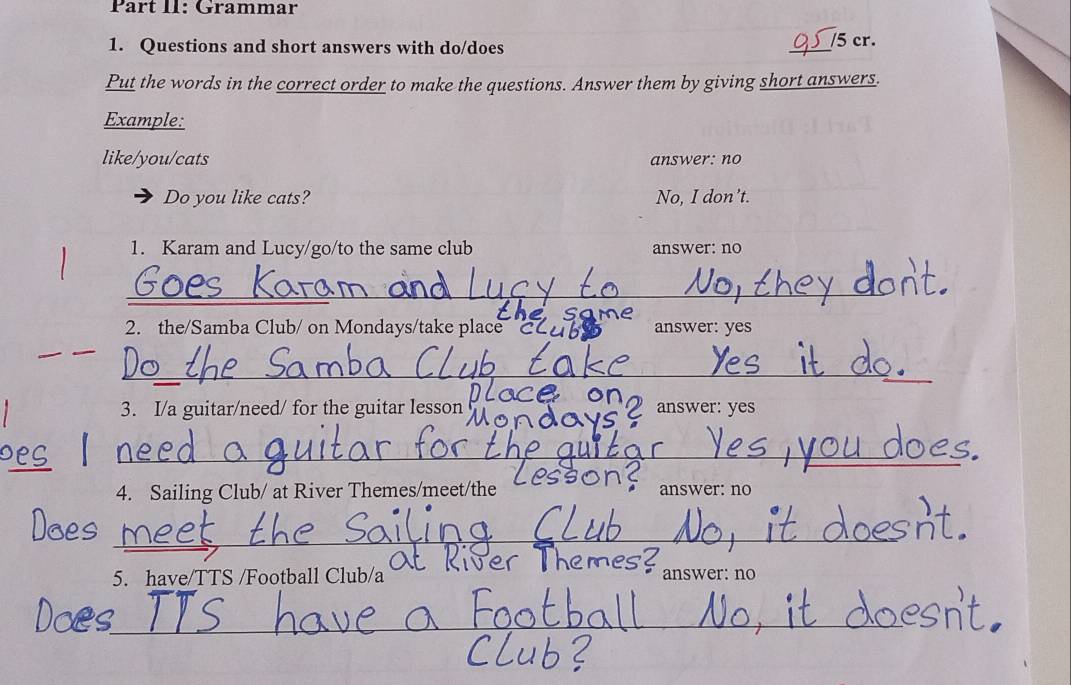 Part II: Grammar
1. Questions and short answers with do/does 95/5 cr.
Put the words in the correct order to make the questions. Answer them by giving short answers.
Example:
like/you/cats answer: no
➔ Do you like cats? No, I don't.
1. Karam and Lucy/go/to the same club answer: no
Goes Karam and Lucy to No, they don't.
the same
2. the/Samba Club/ on Mondays/take place club answer: yes
Do the Samba Club take Yes it do.
place on
3. I/a guitar/need/ for the guitar lesson Mondays? answer: yes
oes I need a guitar for the guitar Yes, you does.
lesson?
4. Sailing Club/ at River Themes/meet/the answer: no
Does meet the Sailing Club No, it doesn't.
at River Themes?
5. have/TTS /Football Club/a answer: no
Does TTS have a Football No, it doesn't.
Club?